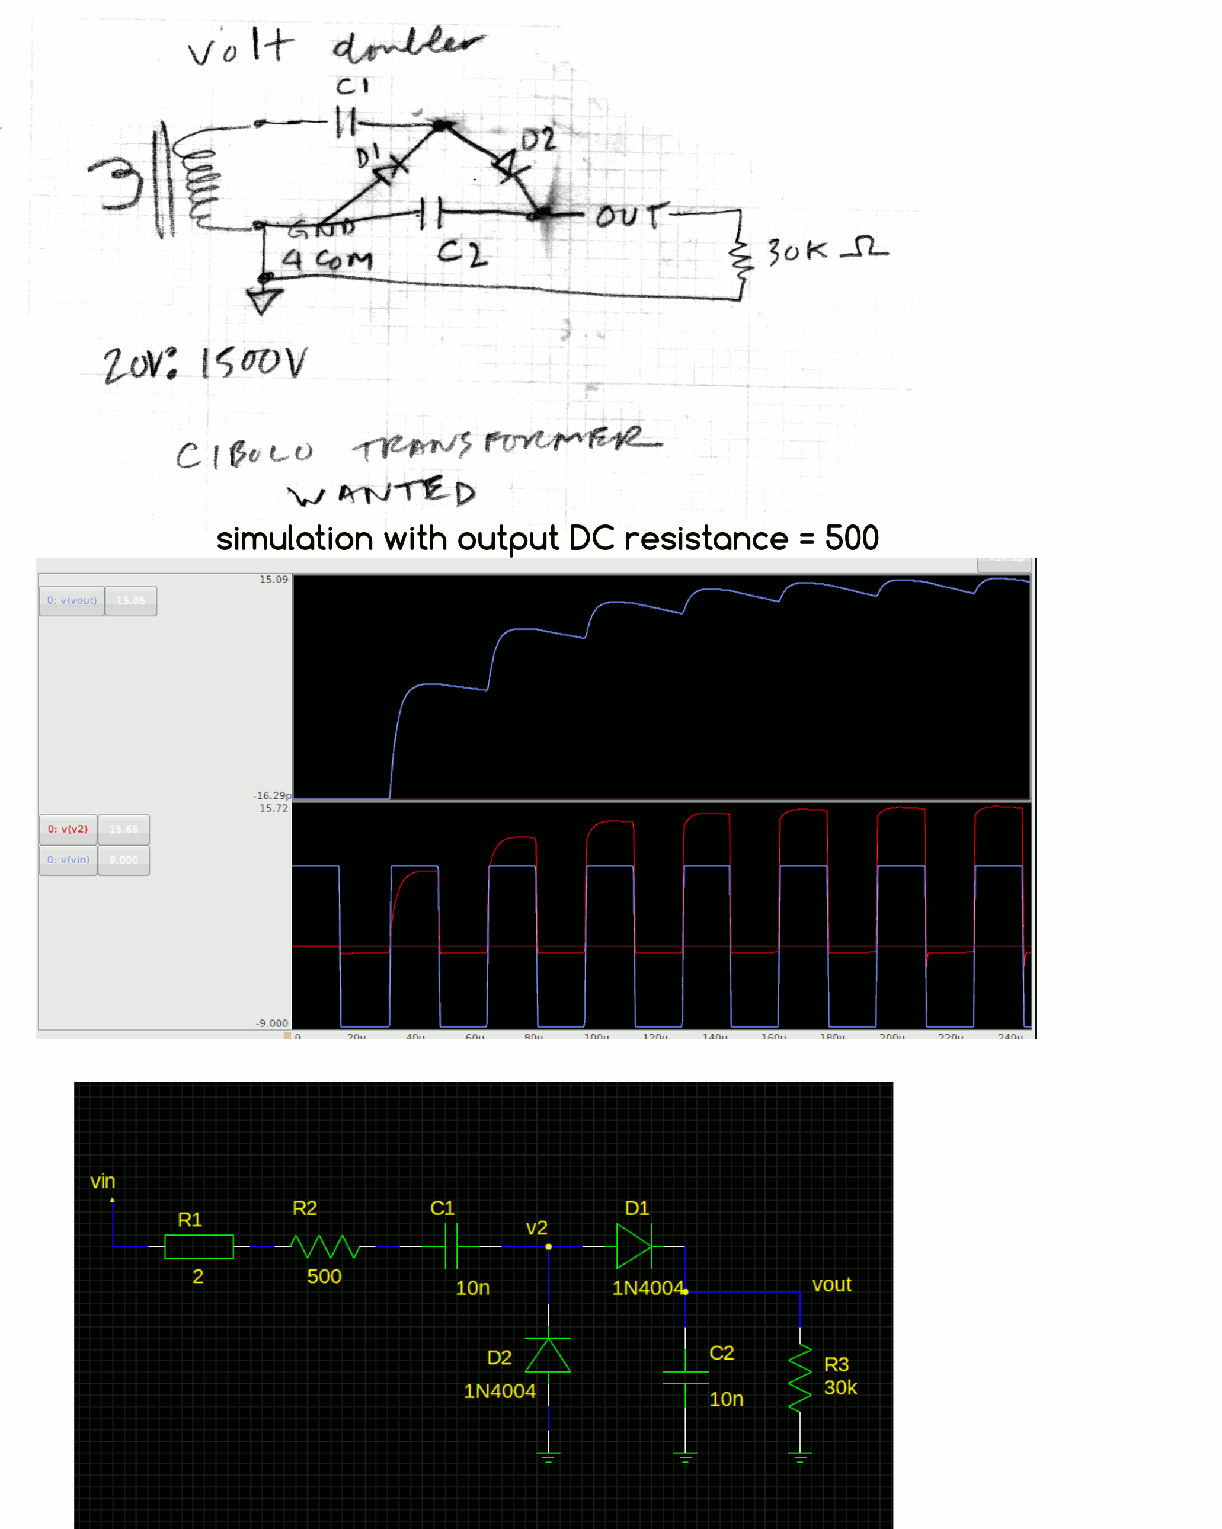 volt doubler
C1
D1
D2
GND
& COM
C2
OUT
30K Ω
20V: 1500V
CIBOLO TRANSFORMER
WANTED
simulation with output DC resistance = 500
15.09
0: v(vout) 15.05
-16.29p
15.72
0: v(v2) 15.68
0: v(vin) 9.000
-9.000
0 20u 40u 60u 80u 100u 120u 140u 160u 180u 200u 220u 240u
vin
R1
2
R2
500
C1
10n
v2
D1
1N4004
vout
D2
1N4004
C2
10n
R3
30k